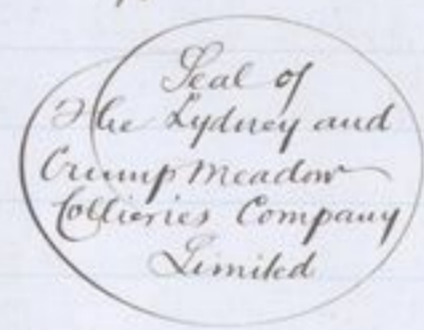 Seal of
The Lydney and
Crump Meadow
Collieries Company
Limited